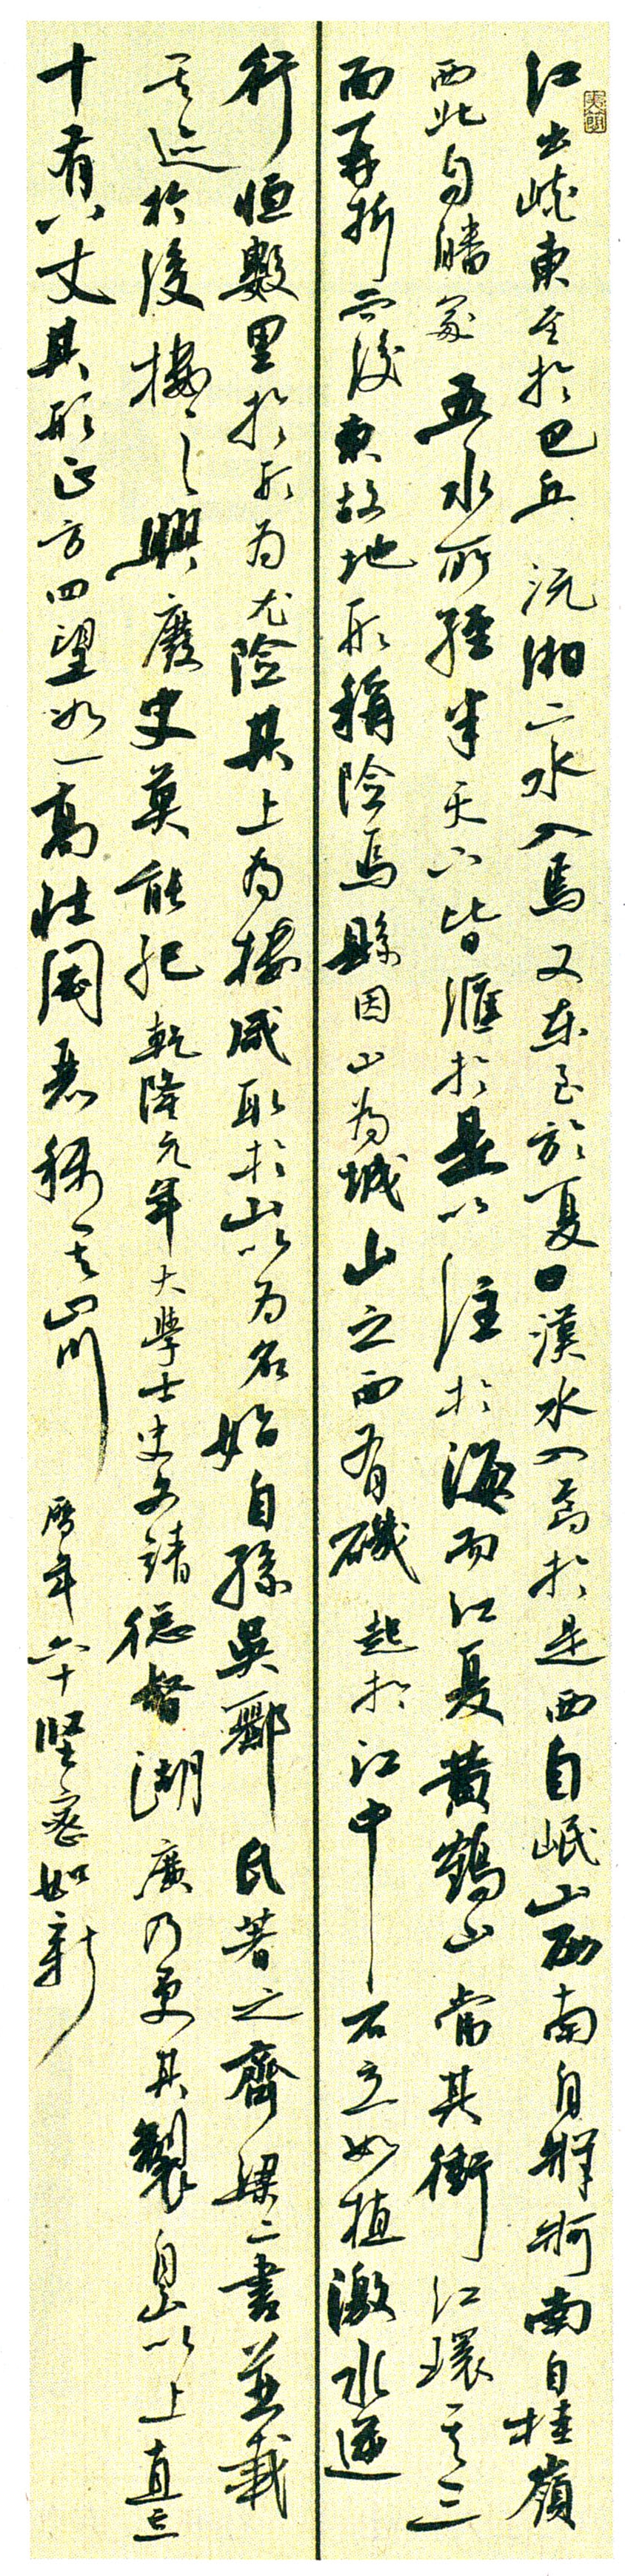 江出峽東至於巴丘沅湘二水入焉又東至於夏口漢水入焉於是西自岷山西南自牂牁南自桂嶺
西北自嶓冢五水所經半天下皆匯於是以注於海而江夏黃鶴山當其衝江環其三
面再折而後東故地形稱險焉縣因山為城山之西有磯起於江中石立如植激水逆
行恒數里於形為尤險其上為樓咸取於山以為名始自孫吳酈氏著之齊梁二書並載
其迹於後樓之興廢史莫能紀乾隆元年大學士史文靖總督湖廣乃更其製自山以上直立
十有八丈其形正方四望如一高壯閎麗稱其山川歷年六十堅密如新